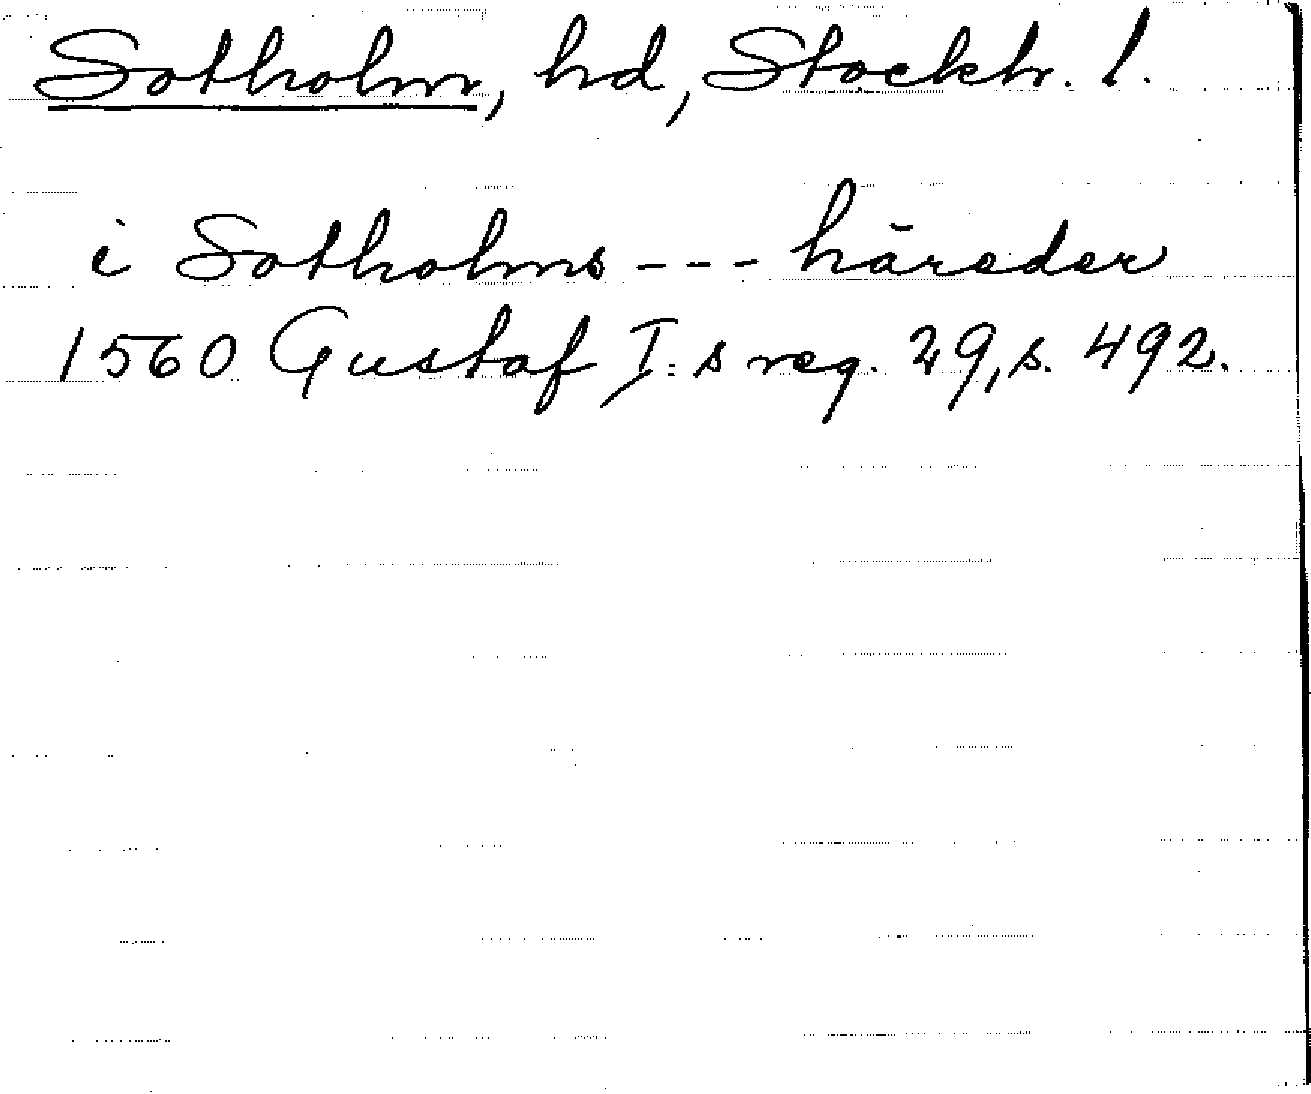 Sotholm, hd, Stockh. l.
i Sotholms --- häreder
1560 Gustaf I:s reg. 29, s. 492.